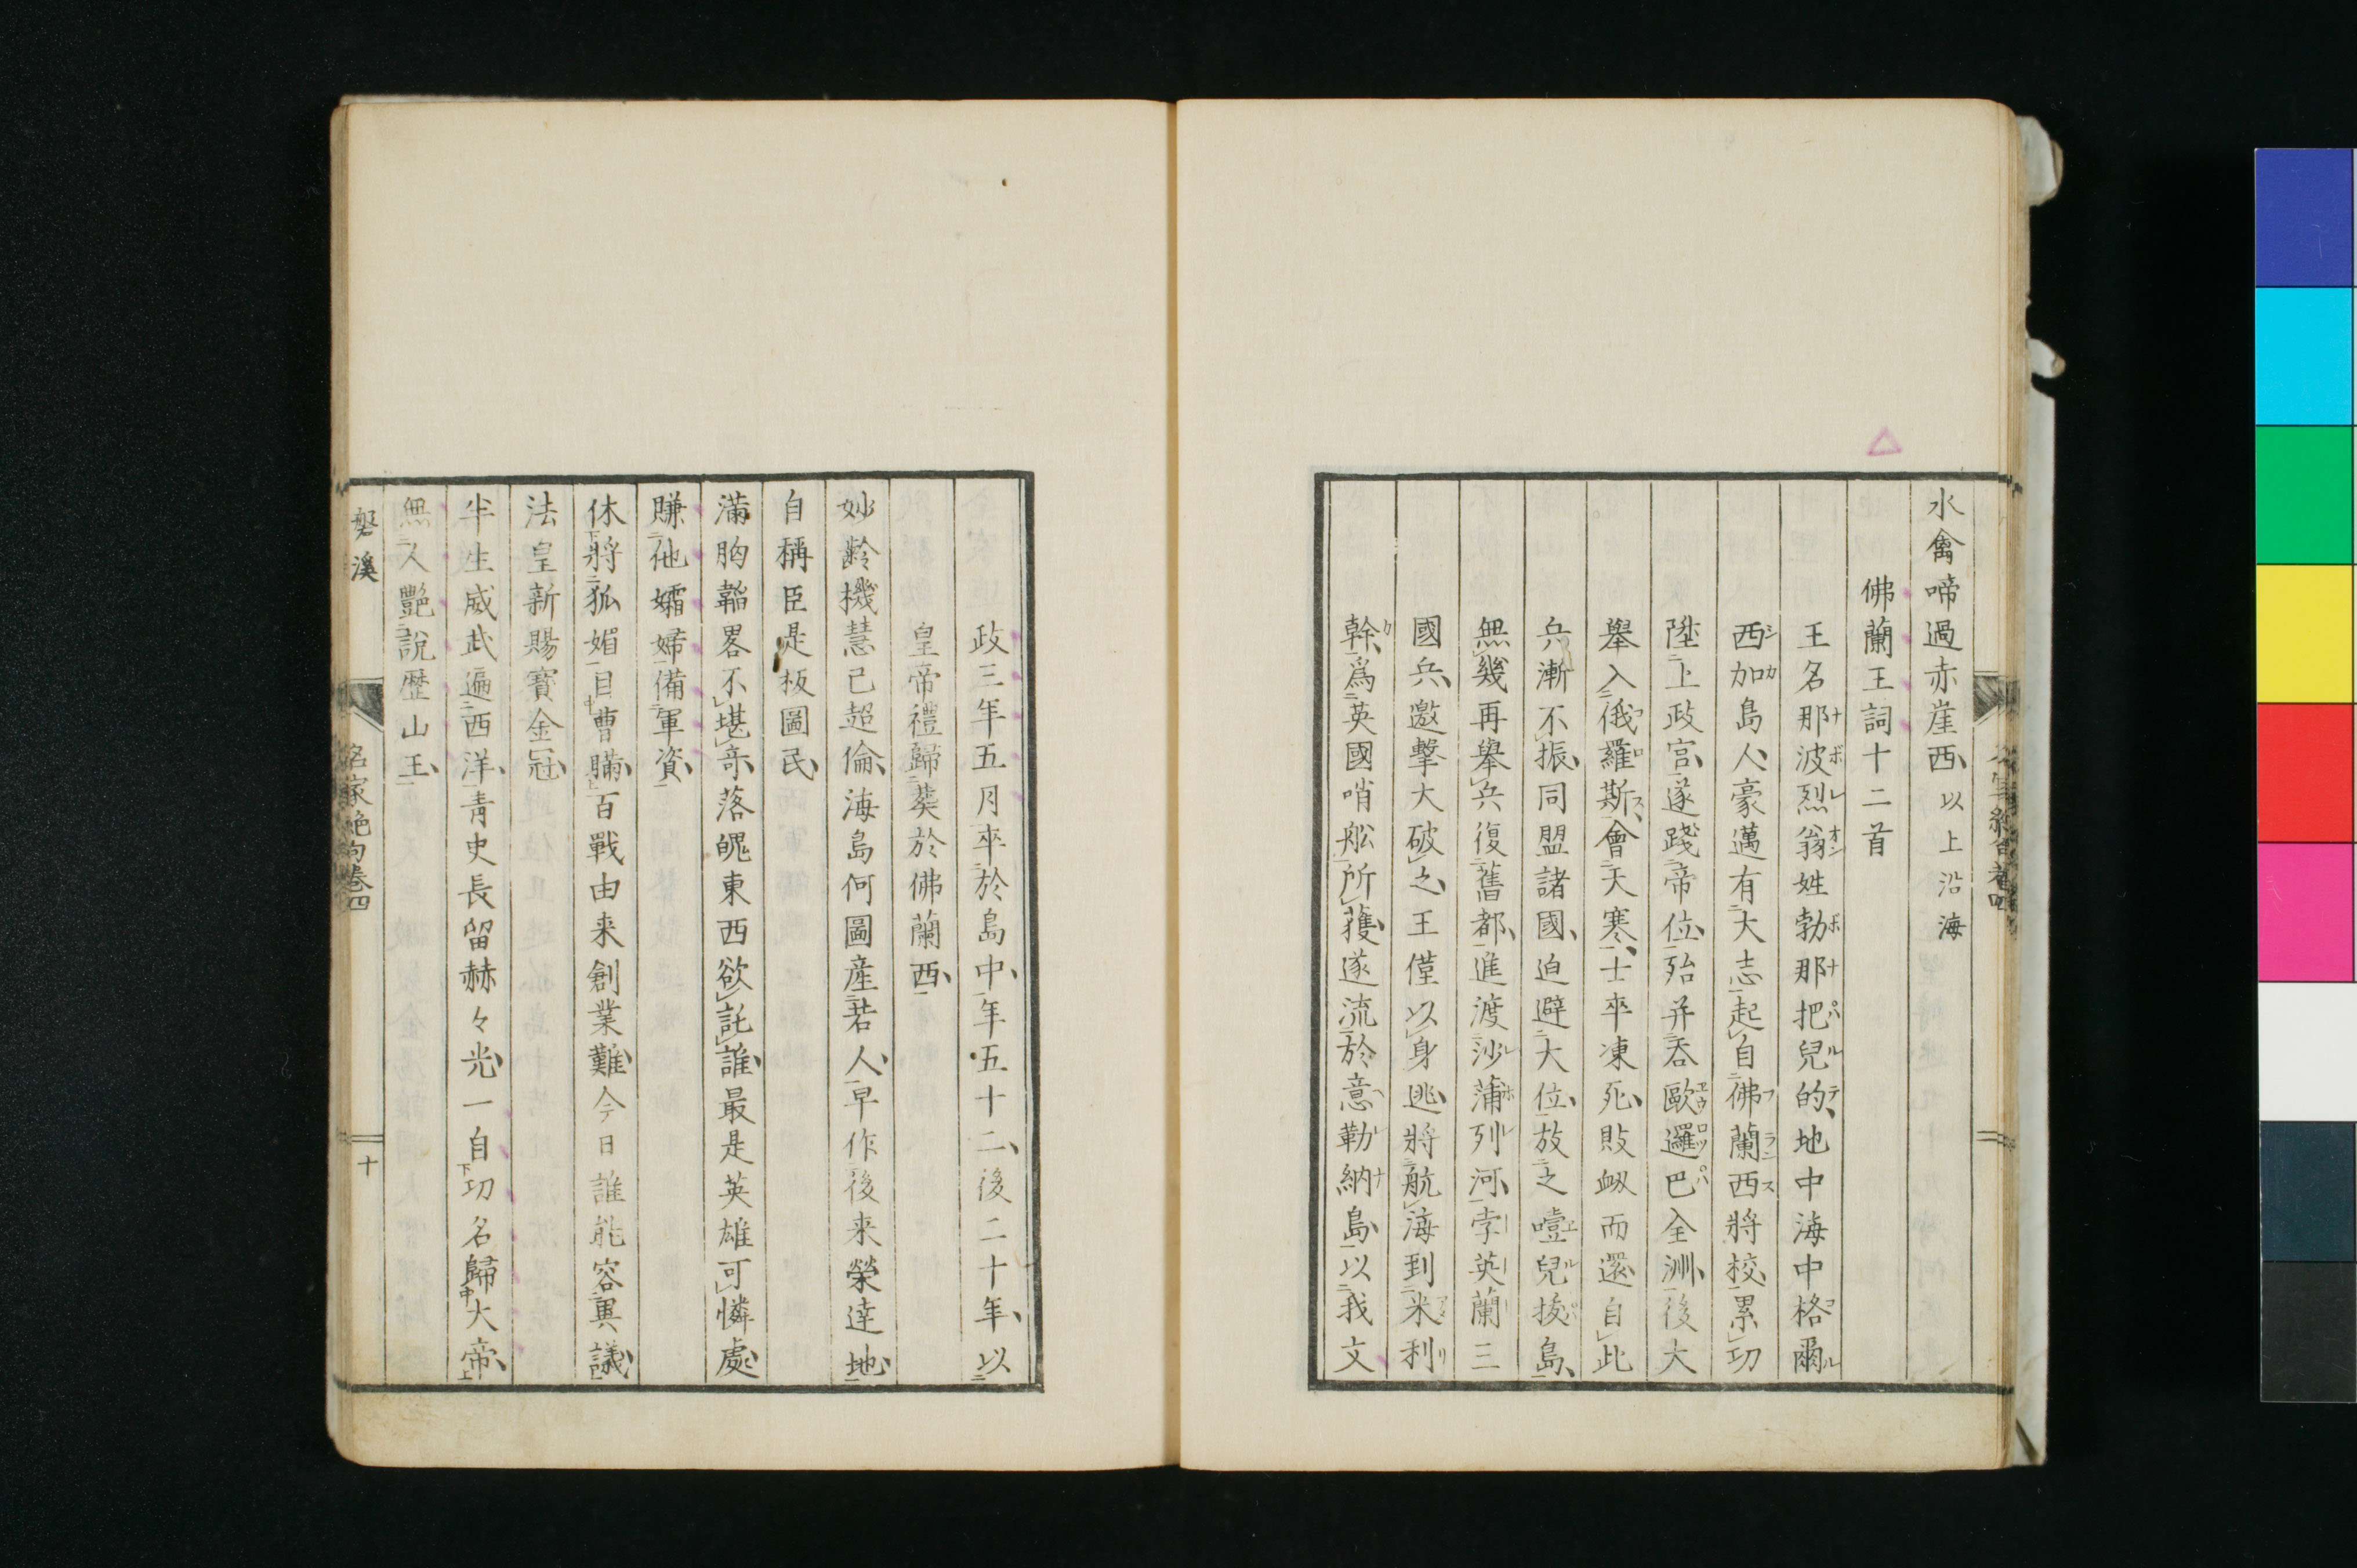 水禽啼過赤崖西、以上沿海
佛蘭王詞十二首
王名那波烈翁姓勃那把兒的、地中海中格爾
西加島人、豪邁有大志起自佛蘭西將校、累功
陞上政官、遂踐帝位、殆并呑歐邏巴全洲、後大
舉入俄羅斯、會天寒、士卒凍死、敗衂而還、自此
兵漸不振、同盟諸國、迫避大位、放之噎兒拔島、
無幾再舉兵復舊都、進渡沙蒲列河、孛英蘭三
國兵、邀擊大破之、王僅以身逃、將航海到米利
幹、爲英國哨舩所獲、遂流於意勒納島、以我文
政三年五月卒於島中、年五十二、後二十年、以
皇帝禮歸葬於佛蘭西、
妙齡機慧已超倫、海島何圖産若人、早作後来榮達地、
自稱臣是板圖民、
滿胸韜畧不堪奇、落魄東西欲託誰、最是英雄可憐處、
賺他孀婦備軍資、
休將狐媚目曹瞞、百戰由来創業難、今日誰能容異議、
法皇新賜寶金冠、
半生威武遍西洋、青史長留赫々光、一自功名歸大帝、
無人艷說歴山王、
磐溪
名家絶句卷四
十